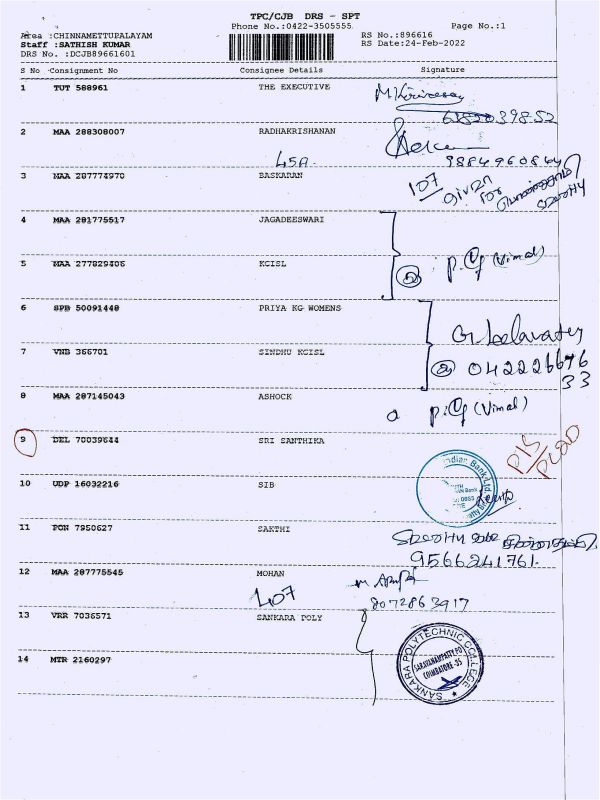 TPC/CJB DRS - SPT
Phone No.:0422-3505555 Page No.:1
Area :CHINNAMETTUPALAYAM RS No.:896616
Staff :SATHISH KUMAR RS Date:24-Feb-2022
DRS No. :DCJB89661601
S No Consignment No Consignee Details Signature
1 TUT 588961 THE EXECUTIVE
2 MAA 288308007 RADHAKRISHANAN
45A
3 MAA 287774970 BASKARAN 107 Given for
4 MAA 281775517 JAGADEESWARI
5 MAA 277829406 KCISL (Vimal)
6 SPB 50091448 PRIYA KG WOMENS
7 VNB 366701 SINDHU KCISL
33
8 MAA 287145043 ASHOCK (Vimal)
9 DEL 70039644 SRI SANTHIKA
10 UDP 16032216 SIB
11 PON 7950627 SAKTHI
9566241761
12 MAA 287775545 MOHAN
407 8072863917
13 VRR 7036571 SANKARA POLY
14 MTR 2160297
SANKARA POLYTECHNIC COLLEGE
SARAVANAMPATTY PO
COIMBATORE-35